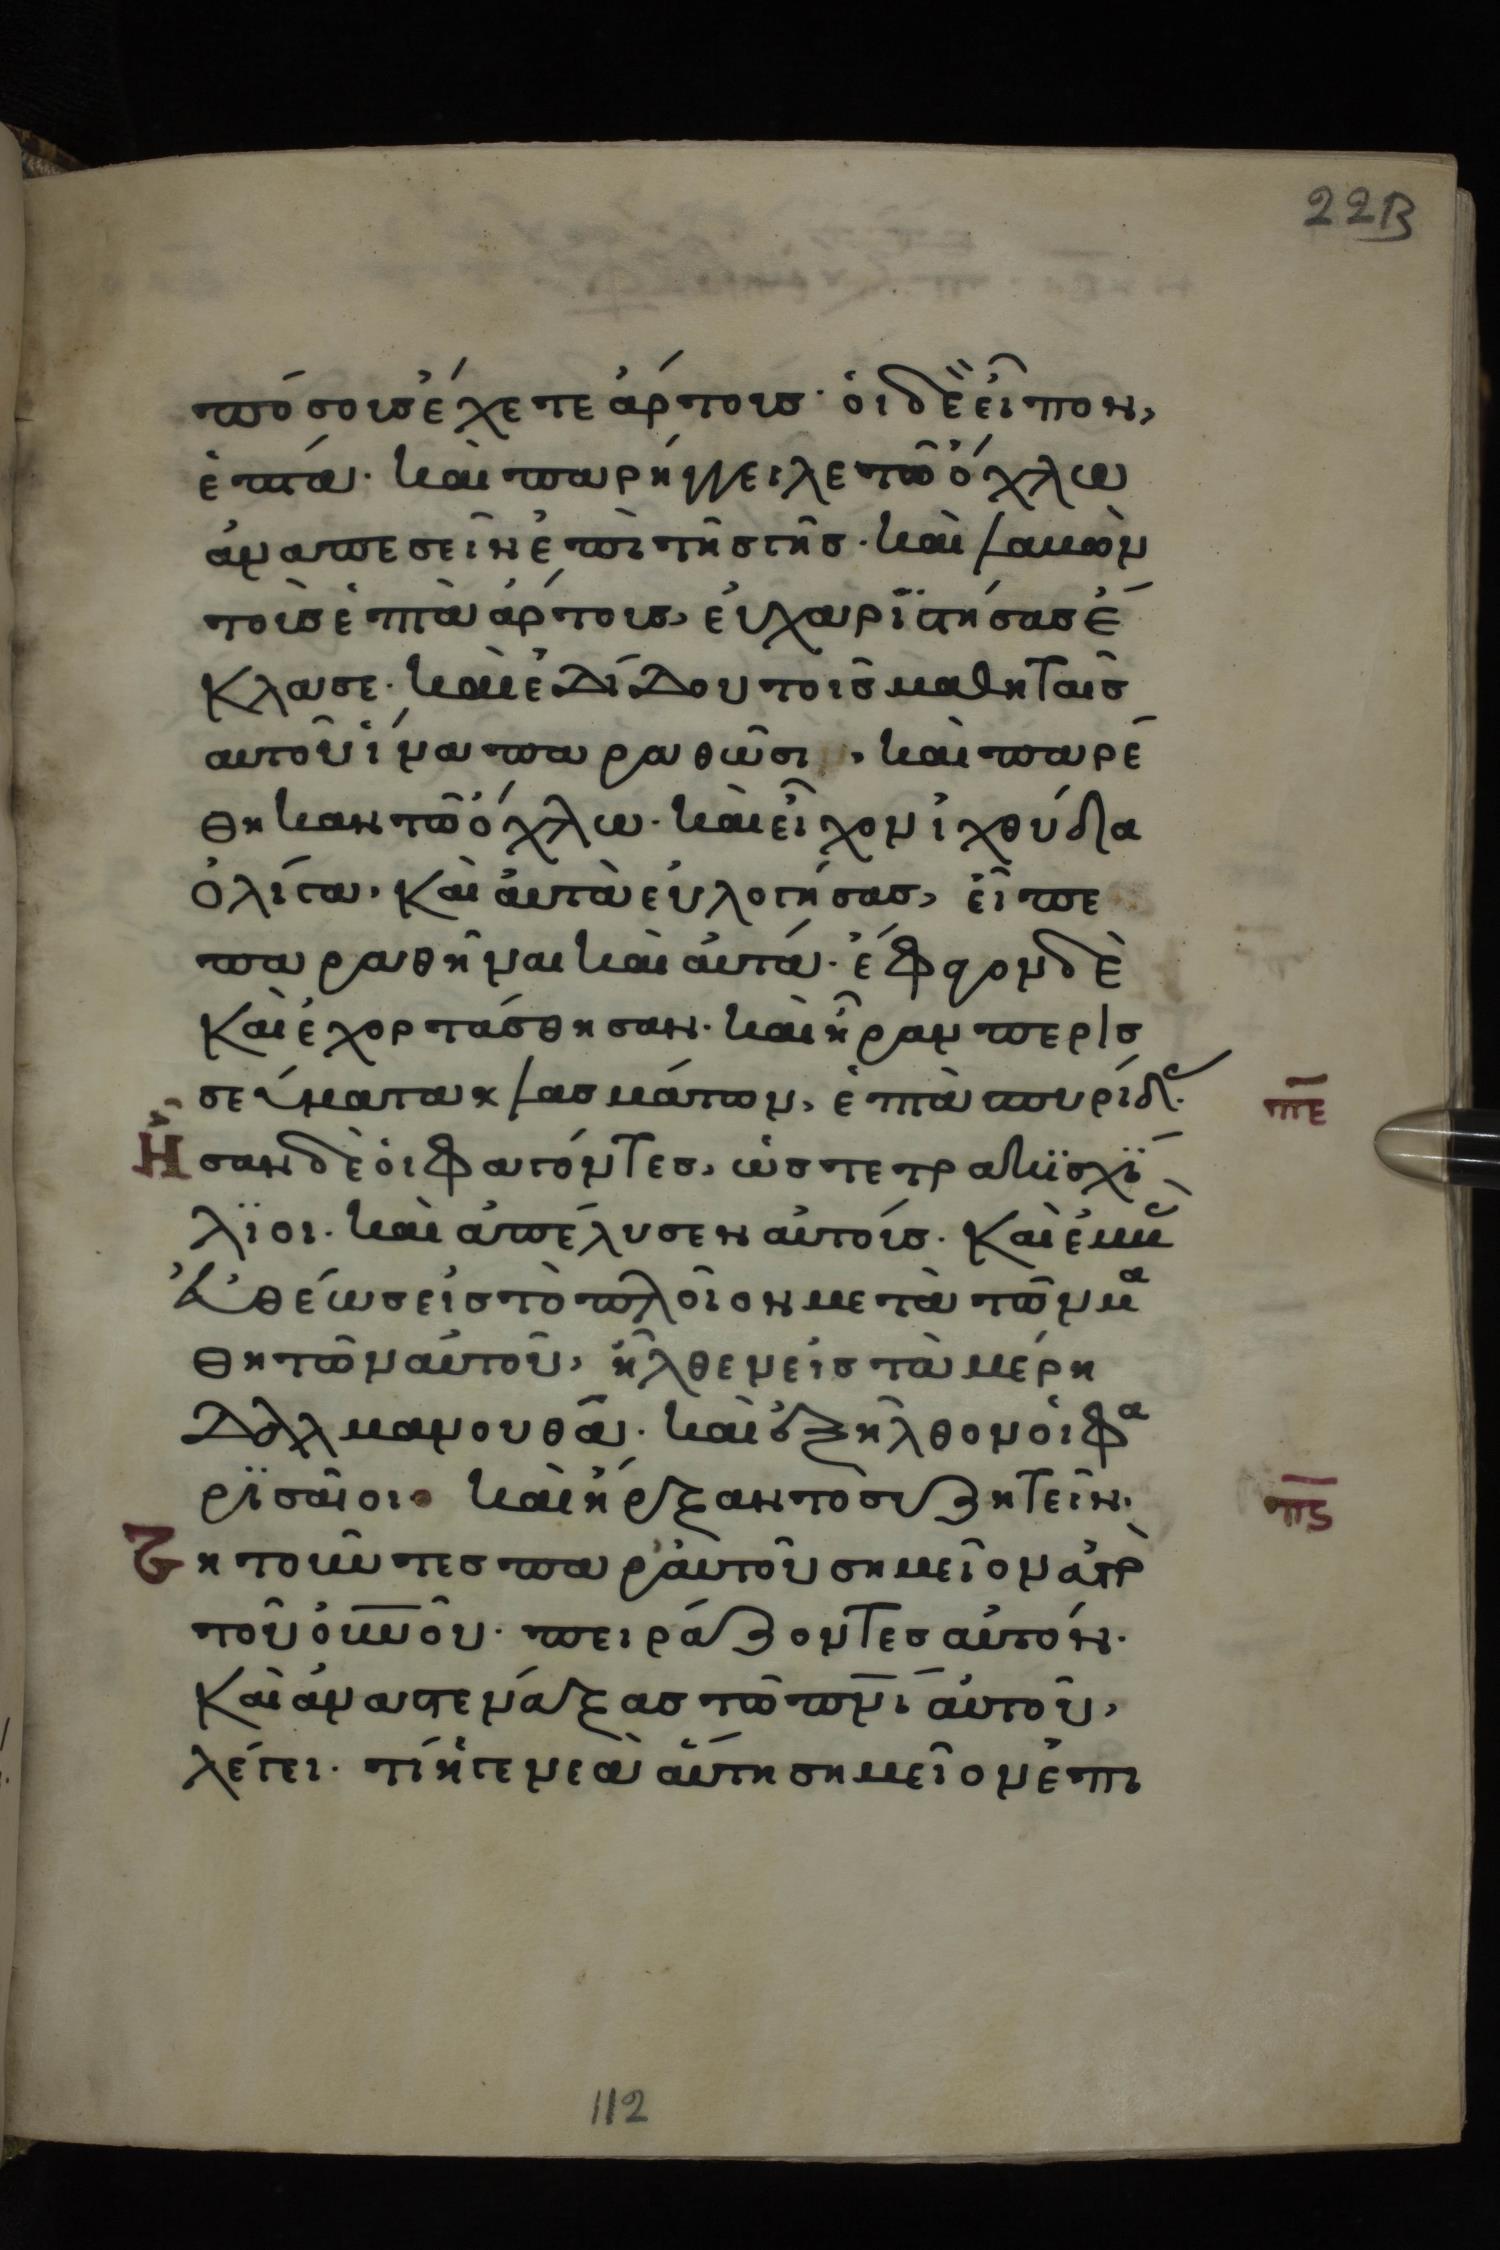 22B
πόσους ἔχετε ἄρτους· οἱ δὲ εἶπον,
ἑπτά· καὶ παρήγγειλε τῶ ὄχλω
ἀναπεσεῖν ἐπὶ τῆς γῆς· καὶ λαβὼν
τοὺς ἑπτὰ ἄρτους, εὐχαρϊστήσας ἔ
κλασε· καὶ ἐδίδου τοῖς μαθηταῖς
αὐτοῦ ἵνα παραθῶσι, καὶ παρέ
θηκαν τῶ ὄχλω· καὶ εἶχον ἰχθύδια
ὀλίγα· καὶ αὐτὰ εὐλογήσας, εἶπε
παραθῆναι καὶ αὐτά· ἔφαγον δὲ
καὶ ἐχορτάσθησαν· καὶ ἦραν περισ
σεύματα κλασμάτων, ἑπτὰ σπυρίδας·
πε
Ἦσαν δὲ οἱ φαγόντες, ὡς τετρακϊσχί
λϊοι· καὶ ἀπέλυσεν αὐτούς· καὶ ἐμβὰς
εὐθέως εἰς τὸ πλοῖον μετὰ τῶν μα
θητῶν αὐτοῦ, ἦλθεν εἰς τὰ μέρη
Δαλμανουθά· καὶ ἐξῆλθον οἱ φα
ρϊσαῖοι· καὶ ἤρξαντο συζητεῖν·
πς
Ζητοῦντες παρ' αὐτοῦ σημεῖον ἀπὸ
τοῦ οὐνοῦ· πειράζοντες αὐτόν·
καὶ ἀναστενάξας τῶ πνι αὐτοῦ,
λέγει· τί ἡ γενεὰ αὕτη σημεῖον ἐπι
112